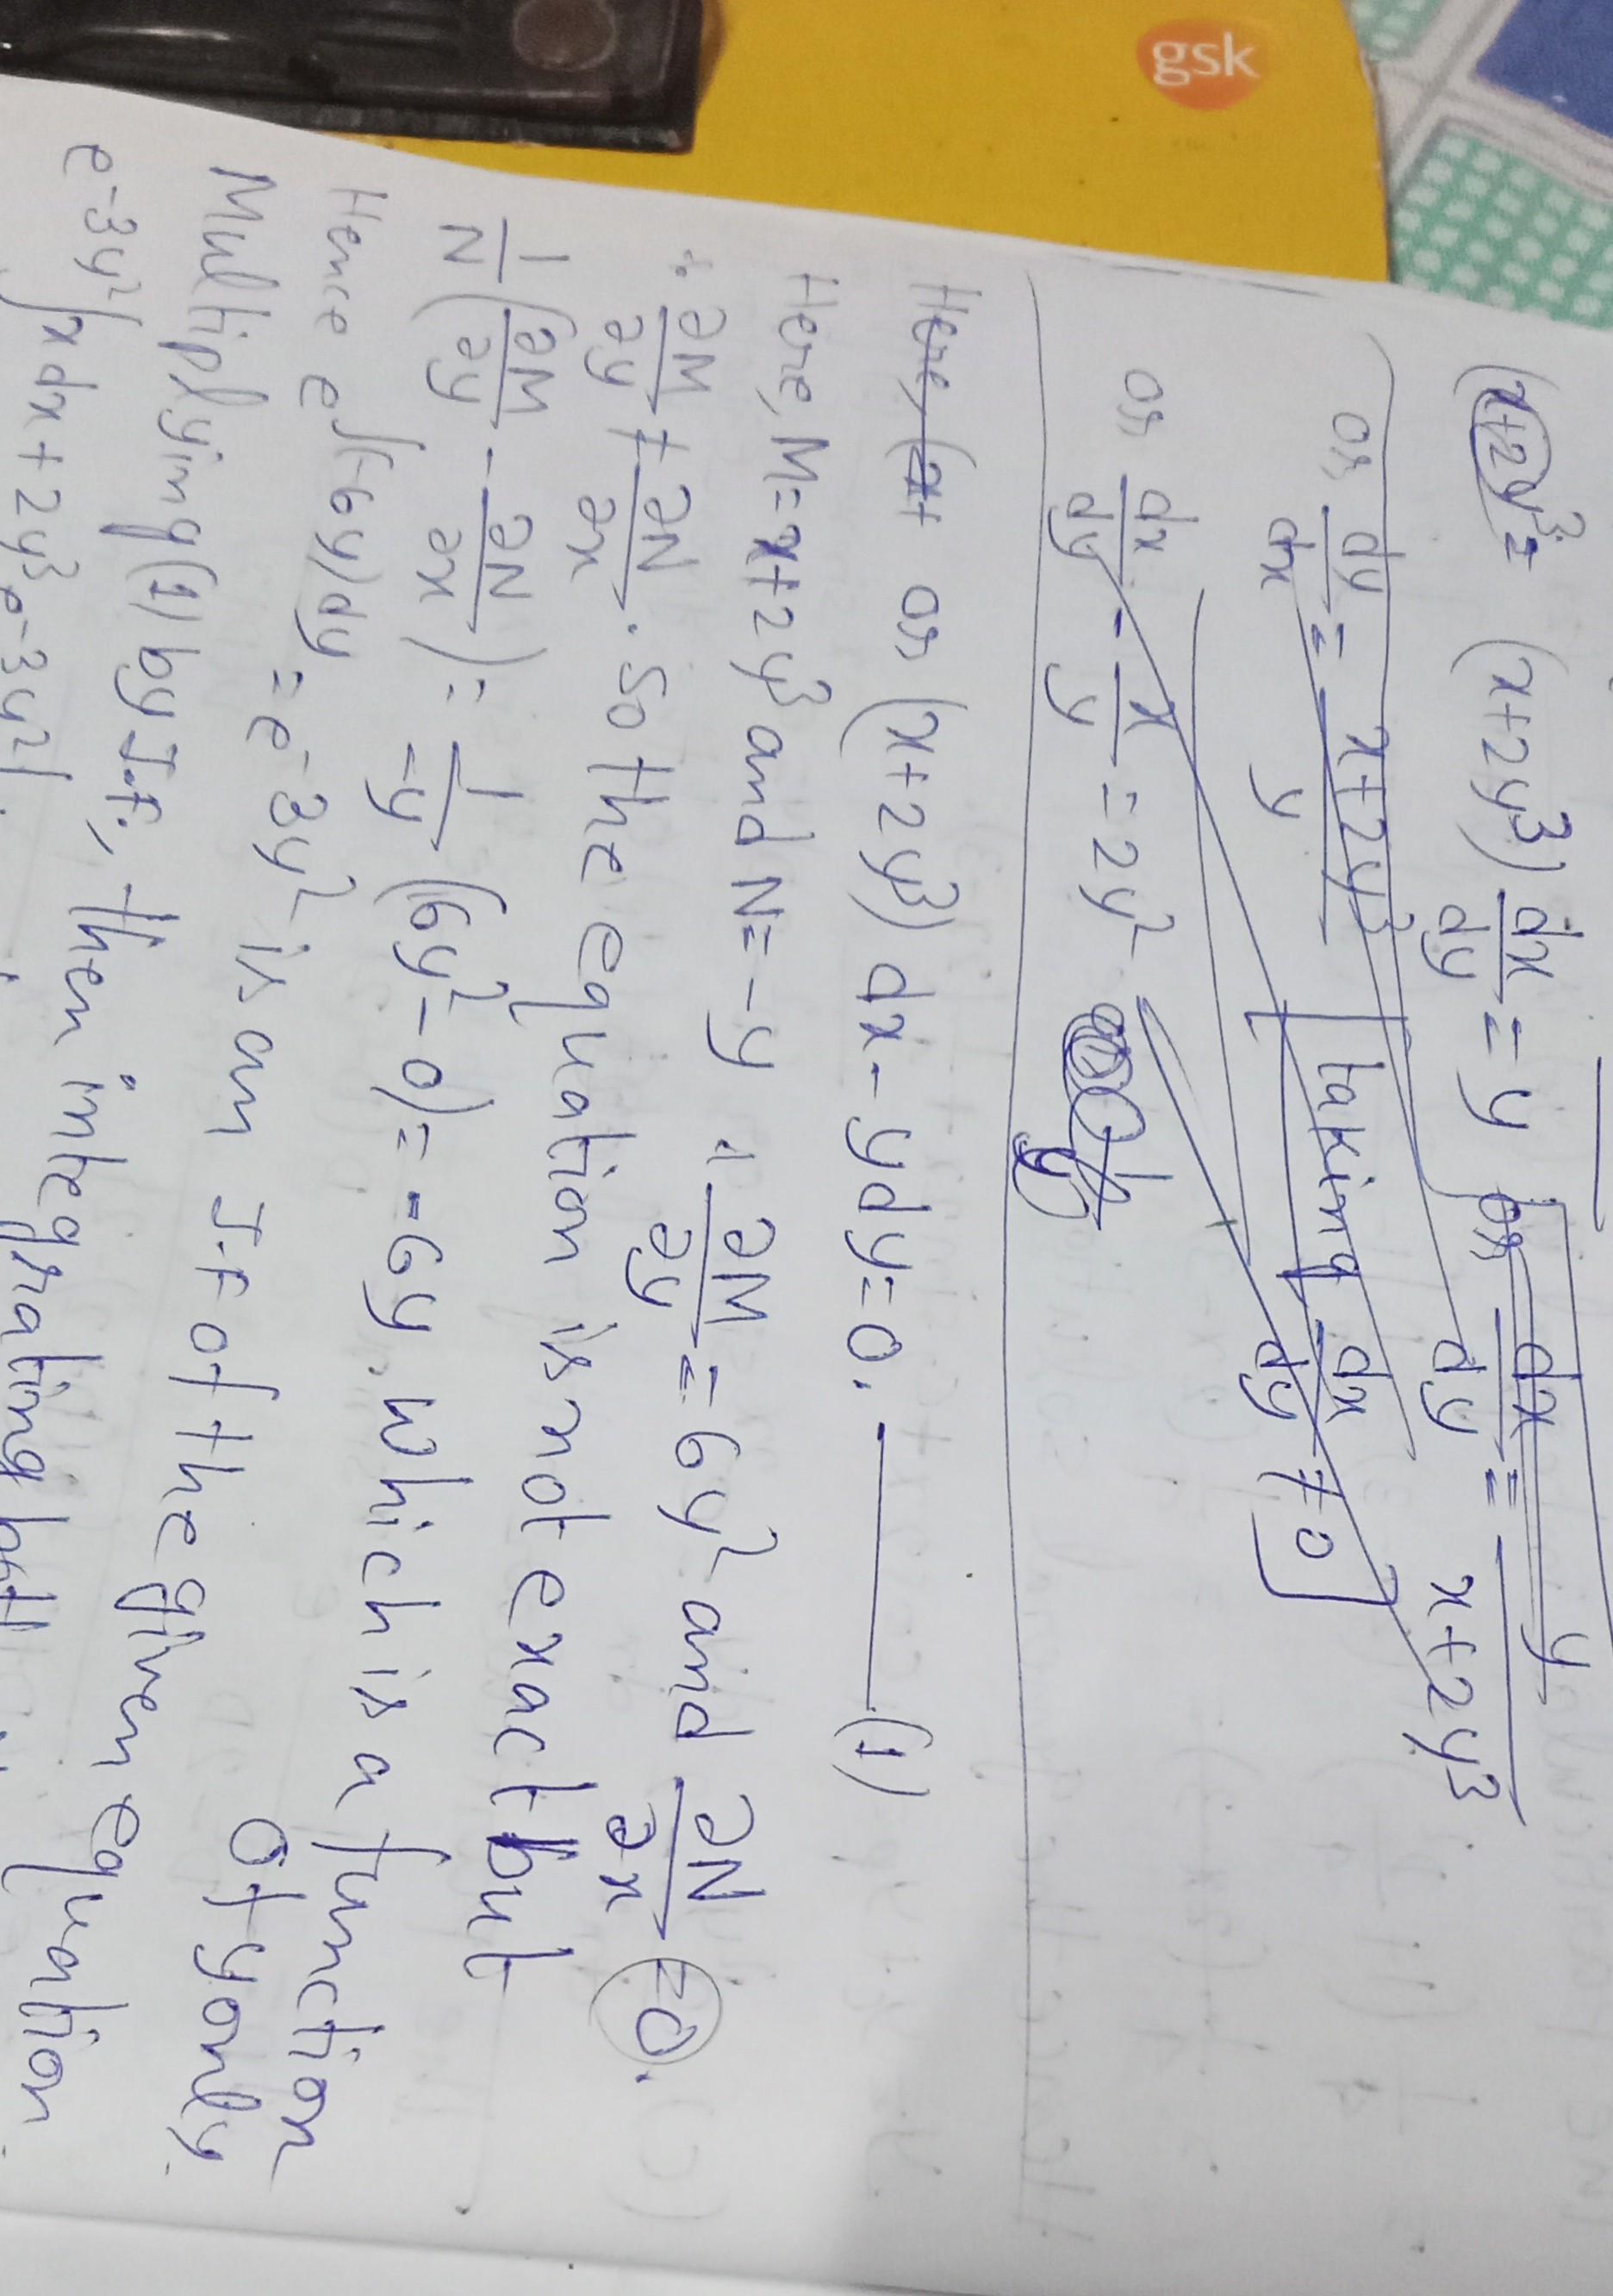 gsk
(x+2y³=
(x+2y³) dx/dy = y
or dx/dy = y/(x+2y³)
or, dy/dx = (x+2y³)/y [taking dx/dy ≠ 0]
or dx/dy - x/y = 2y²
Here, (x+ or (x+2y³) dx - ydy = 0. —— (1)
Here, M = x+2y³ and N = -y ∴ ∂M/∂y = 6y² and ∂N/∂x = 0.
∴ ∂M/∂y ≠ ∂N/∂x. So the equation is not exact but
1/N (∂M/∂y - ∂N/∂x) = 1/-y (6y² - 0) = -6y. Which is a function
of y only
Hence e^∫(-6y)dy = e^-3y² is an I.F of the given equation.
Multiplying (1) by I.F., then integrating
e^-3y² ∫x dx + 2y³ e^-3y²